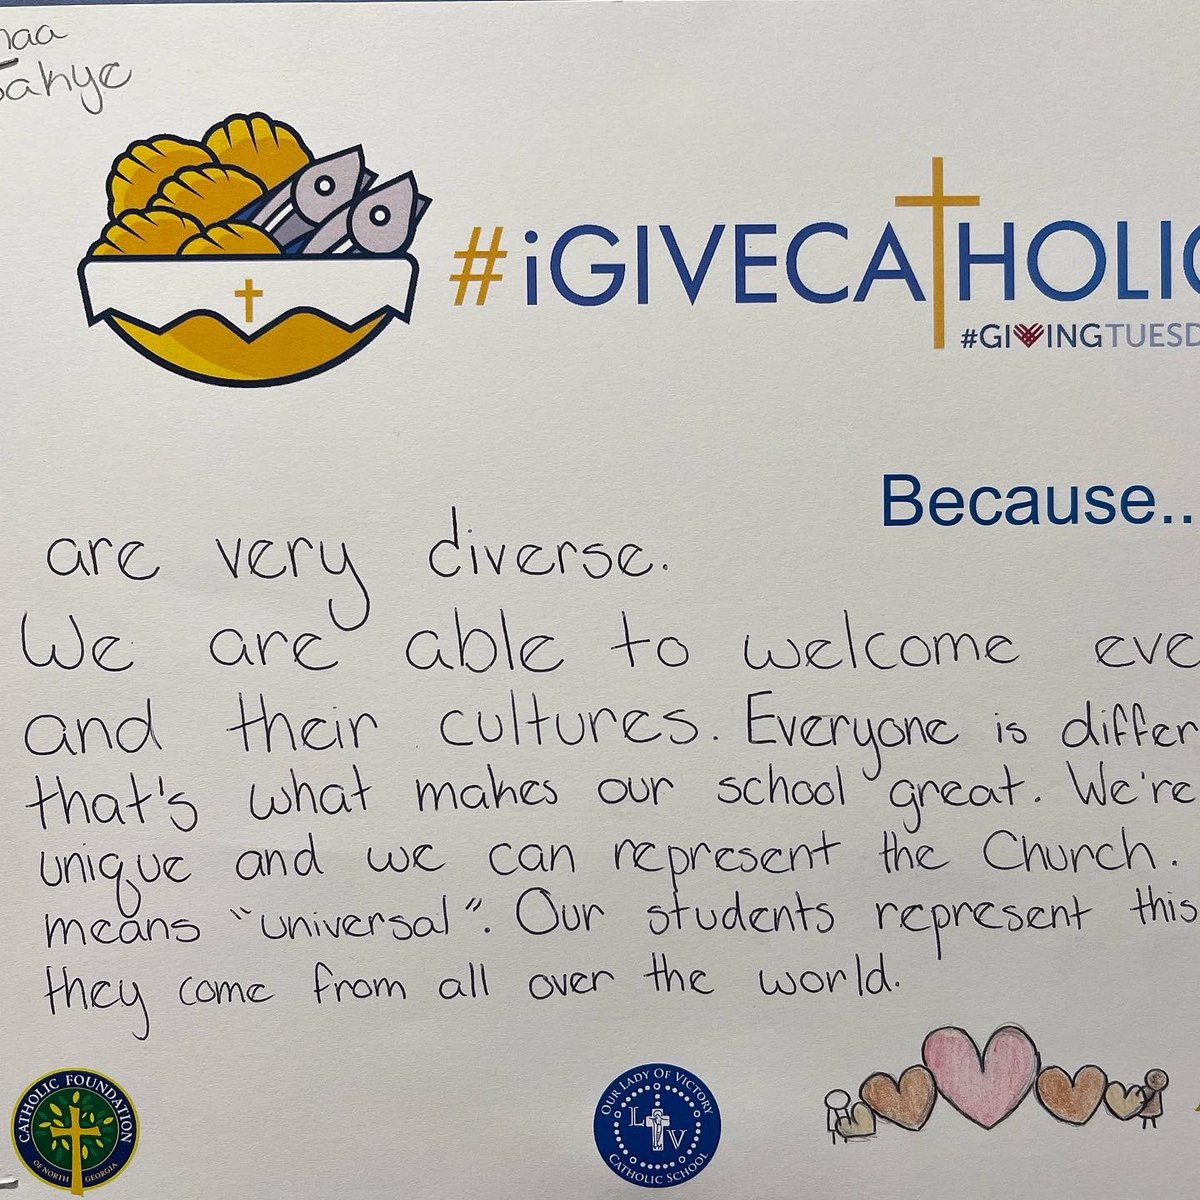 #iGIVECATHOLIC
#GIVINGTUESD
Because..
are very diverse.
We are able to welcome eve
and their cultures. Everyone is differ
that's what makes our school great. We're
unique and we can represent the Church.
means "universal". Our students represent this
they come from all over the world.
CATHOLIC FOUNDATION
OF NORTH GEORGIA
OUR LADY OF VICTORY
L V
CATHOLIC SCHOOL